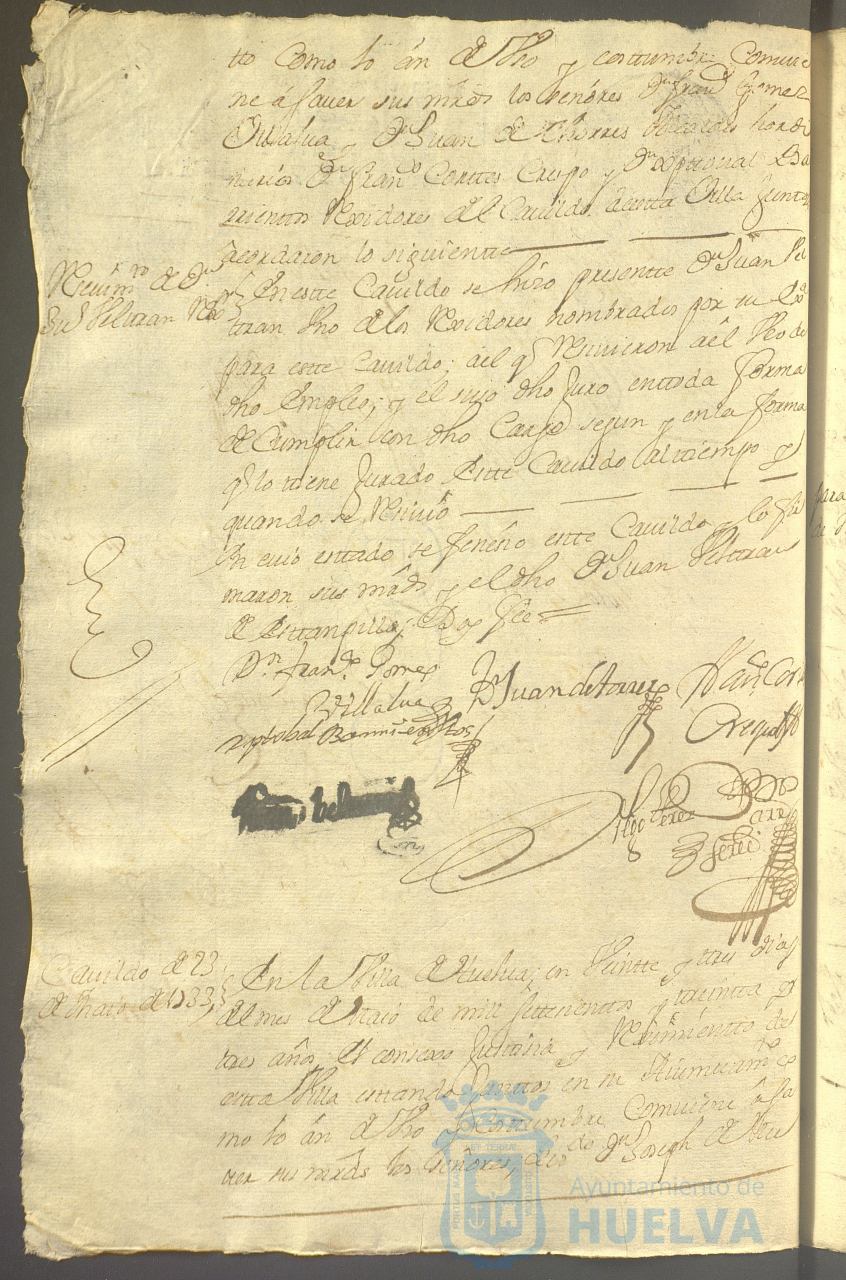 tto como lo án de Vso y costtumbre comvie
ne á saver sus mrds los señores Dn Franco Gomez
Villalva, y Dn Juan de thorres Alcaldes hordi
narios Dn Franco Cortes Crespo y Dn Xptoval Ba
rrientos Rexidores del Cavildo desta Villa Juntos
acordaron lo siguientte
Recivimto de Dn
Jun Veltran Rexor
Enestte Cavildo se hizo presentte Dn Juan Vel
tran Vno de los Rexidores nombrados por su Exa
para este Cavildo; del qe Recivieron ael Vso de
dho Empleo; y el suso dho Juro en ttoda forma
de Cumplir con dho Cargo segun y en la forma
qe lo ttiene Jurado Estte Cavildo al tiempo y
quando se Recivió
En cuio esttado se feneció estte Cavildo y lo fir
maron sus mrds y el dho Dn Juan Velttran
de Esttampilla; Doy fee
Dn Franco Gomez
Villalva
Dn Juan de torres
Franco Cortes
Crespo
xptobal Barrientos
Juan beltran
Diego Perez
Cavildo de 23
de Maio de 1733
En la Villa de Huelva; en Veintte y tres dias
del mes de Maio de mill settecientos y treinta y
tres años el consexo Justticia y Reximientto de
esta Villa esttando Junttos en su Aiuntamto co
mo lo án de Vso y Costtumbre Comviene á sa
ver sus mrds los señores, Lizdo Dn Joseph de
FORTUS MARIS
ET TERRAE
CUSTODIA
Ayuntamiento de
HUELVA